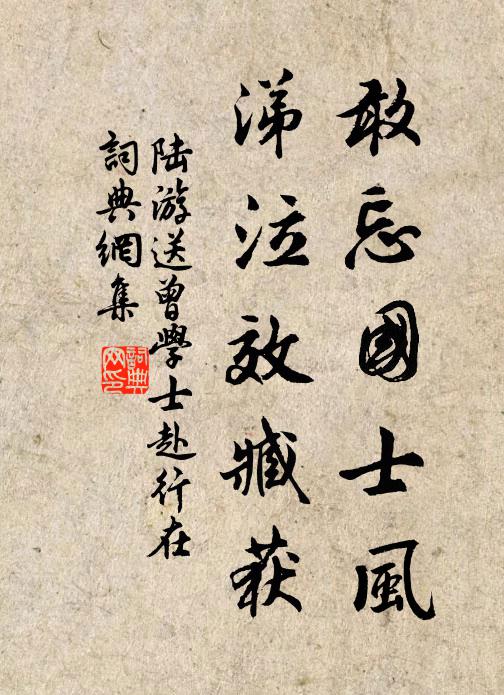 敢忘國士風
涕泣效臧获
陆游送曾學士赴行在
詞典網集
詞典
网印